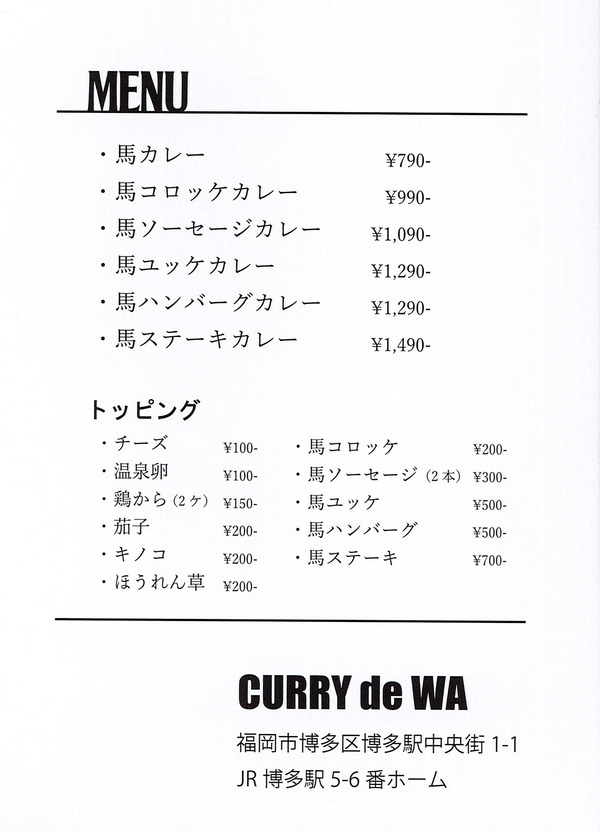 MENU
・馬カレー ¥790-
・馬コロッケカレー ¥990-
・馬ソーセージカレー ¥1,090-
・馬ユッケカレー ¥1,290-
・馬ハンバーグカレー ¥1,290-
・馬ステーキカレー ¥1,490-
トッピング
・チーズ ¥100-
・温泉卵 ¥100-
・鶏から（2 ケ） ¥150-
・茄子 ¥200-
・キノコ ¥200-
・ほうれん草 ¥200-
・馬コロッケ ¥200-
・馬ソーセージ（2 本） ¥300-
・馬ユッケ ¥500-
・馬ハンバーグ ¥500-
・馬ステーキ ¥700-
CURRY de WA
福岡市博多区博多駅中央街 1-1
JR 博多駅 5-6 番ホーム